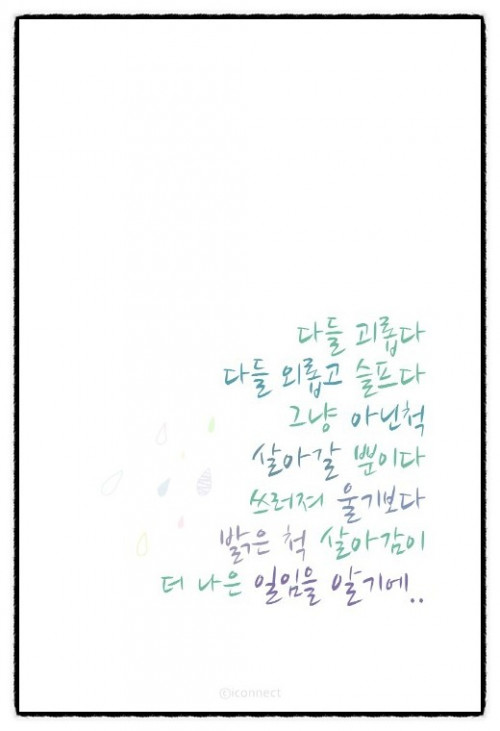 다들 괴롭다
다들 외롭고 슬프다
그냥 아닌척
살아갈 뿐이다
쓰러져 울기보다
밝은 척 살아감이
더 나은 일임을 알기에..
ⓒiconnect